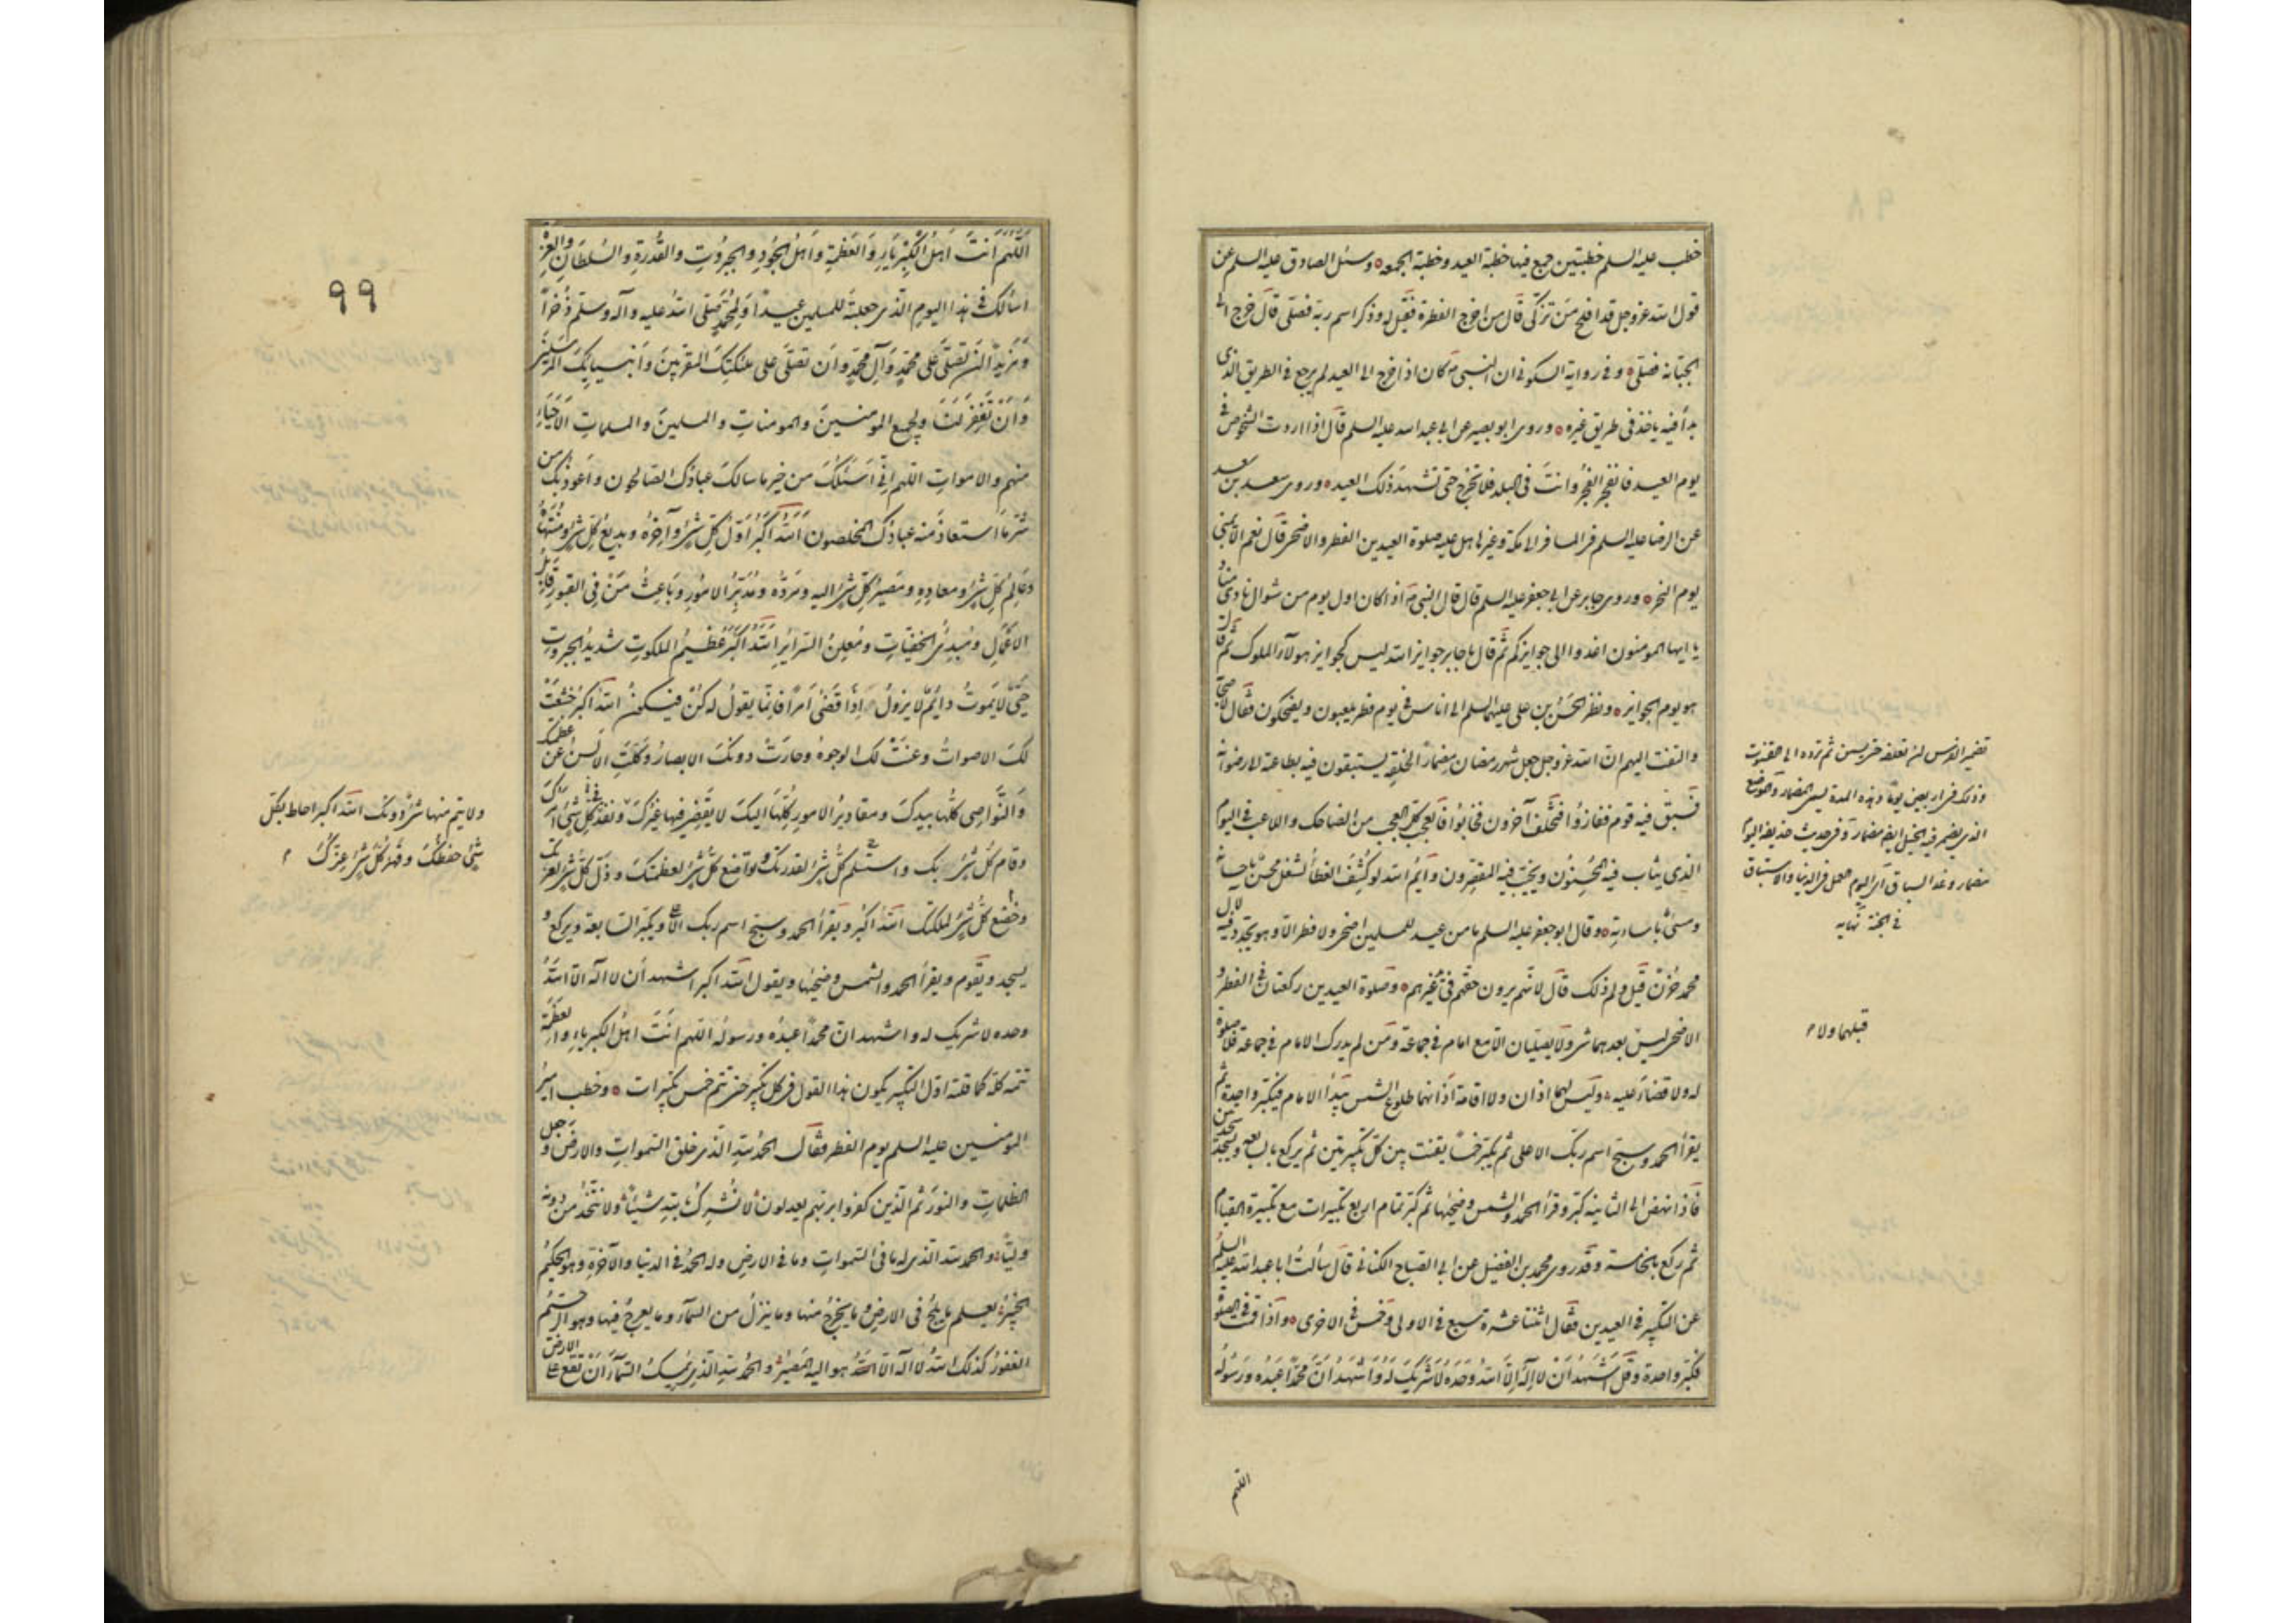 خطب عليه السلم خطبتين جمع فيهما خطبة العيد وخطبة الجمعه وسئل الصادق عليه السلم عن
قول الله عزوجل قد افلح من تزكى قال من اخرج الفطرة فقيل له وذكر اسم ربه فصلى قال خرج الى
الجبانة فصلى وفي رواية السكوني ان النبي ص كان اذا خرج الى العيد لم يرجع في الطريق الذي
بدأ فيه ياخذ في طريق غيره وروى ابو بصير عن ابي عبد الله عليه السلم قال اذا اردت الشخوص في
يوم العيد فانفجر الفجر وانت في البلد فلا تخرج حتى تشهد ذلك العيد وروى سعد بن سعد
عن الرضا عليه السلم في المسافر الى مكة وغيرها هل عليه صلوة العيدين الفطر والاضحى قال نعم الا بمنى
يوم النحر وروى جابر عن ابي جعفر عليه السلم قال قال النبي ص اذا كان اول يوم من شوال نادى مناد
يا ايها المومنون اغدوا الى جوايزكم ثم قال يا جابر جوايز الله ليس كجوايز هولاء الملوك ثم قال
هو يوم الجوايز ونظر الحسن بن علي عليهما السلم الى اناس في يوم فطر يلعبون ويضحكون فقال لاصحابه
والتفت اليهم ان الله عزوجل جعل شهر رمضان مضمارا لخلقه يستبقون فيه بطاعته الى رضوانه
فسبق فيه قوم ففازوا وتخلف آخرون فخابوا فالعجب كل العجب من الضاحك واللاعب في اليوم
الذي يثاب فيه المحسنون ويخيب فيه المقصرون وايم الله لو كشف الغطاء لشغل محسن باحسانه
ومسئ باساءته وقال ابو جعفر عليه السلم ما من عيد للمسلمين اضحى ولا فطر الا وهو يجدد فيه لآل
محمد حزن قيل ولم ذلك قال لانهم يرون حقهم في يد غيرهم وصلوة العيدين ركعتان في الفطر و
الاضحى ليس بعدهما شئ ولا يصليان الا مع امام في جماعة ومن لم يدرك الامام في جماعة فلا صلوة
له ولا قضاء عليه وليس لهما اذان ولا اقامة اذانهما طلوع الشمس يبدأ الامام فيكبر واحدة ثم
يقرأ الحمد وسبح اسم ربك الاعلى ثم يكبر خمسا يقنت بين كل تكبيرتين ثم يركع بالسابعة ويسجد سجدتين
فاذا نهض الى الثانية كبر وقرأ الحمد والشمس وضحيها ثم كبر تمام اربع تكبيرات مع تكبيرة القيام
ثم ركع بالخامسة وقد روى محمد بن الفضيل عن ابي الصباح الكناني قال سألت ابا عبد الله عليه السلم
عن التكبير في العيدين فقال اثنتا عشرة سبع في الاولى وخمس في الاخرى واذا قمت في الصلوة
فكبر واحدة وقل اشهد ان لا اله الا الله وحده لا شريك له واشهد ان محمدا عبده ورسوله
اللهم
في الجنة نهايه
قبلهما ولا
٩٩
اللهم انت اهل الكبرياء والعظمة واهل الجود والجبروت والقدرة والسلطان والعزة
اسالك في هذا اليوم الذي جعلته للمسلمين عيدا ولمحمد صلى الله عليه وآله وسلم ذخرا
ومزيدا ان تصلى على محمد وآل محمد وان تصلى على ملئكتك المقربين وانبيائك المرسلين
وان تغفر لنا ولجميع المومنين والمومنات والمسلمين والمسلمات الاحياء
منهم والاموات اللهم اني اسئلك من خير ما سالك عبادك الصالحون واعوذ بك من
شر ما استعاذ منه عبادك المخلصون الله اكبر اول كل شئ وآخره وبديع كل شئ ومنتهاه
وعالم كل شئ ومعاده ومصير كل شئ اليه ومرده ومدبر الامور وباعث من في القبور قابل
الاعمال ومبدئ الخفيات ومعلن السراير الله اكبر عظيم الملكوت شديد الجبروت
حى لا يموت دائم لا يزول اذا قضى امرا فانما يقول له كن فيكون الله اكبر خشعت
لك الاصوات وعنت لك الوجوه وحارت دونك الابصار وكلت الالسن عن عظمتك
والنواصى كلها بيدك ومقادير الامور كلها اليك لا يقضى فيها غيرك ونفذ في كل شئ امرك
وقام كل شئ بك واستسلم كل شئ لقدرتك وتواضع كل شئ لعظمتك وذل كل شئ لعزتك
وخضع كل شئ لملكك الله اكبر ويقرأ الحمد وسبح اسم ربك الاعلى ويكبر السابعة ويركع و
يسجد ويقوم ويقرأ الحمد والشمس وضحيها ويقول الله اكبر اشهد ان لا اله الا الله
وحده لا شريك له واشهد ان محمدا عبده ورسوله اللهم انت اهل الكبرياء والعظمة
تتمه كله كما قلته اول التكبير يكون هذا القول في كل تكبيرة حتى تتم خمس تكبيرات وخطب امير
المومنين عليه السلم يوم الفطر فقال الحمد لله الذي خلق السموات والارض وجعل
الظلمات والنور ثم الذين كفروا بربهم يعدلون لا نشرك بالله شيئا ولا نتخذ من دونه
وليا والحمد لله الذي له ما في السموات وما في الارض وله الحمد في الدنيا والآخرة وهو الحكيم
الخبير يعلم ما يلج في الارض وما يخرج منها وما ينزل من السماء وما يعرج فيها وهو الرحيم
الغفور كذلك الله لا اله الا هو اليه المصير والحمد لله الذي يمسك السماء ان تقع على الارض
ولا يتم منها شئ دونك الله اكبر احاط بكل
شئ حفظك وقهر كل شئ عزك